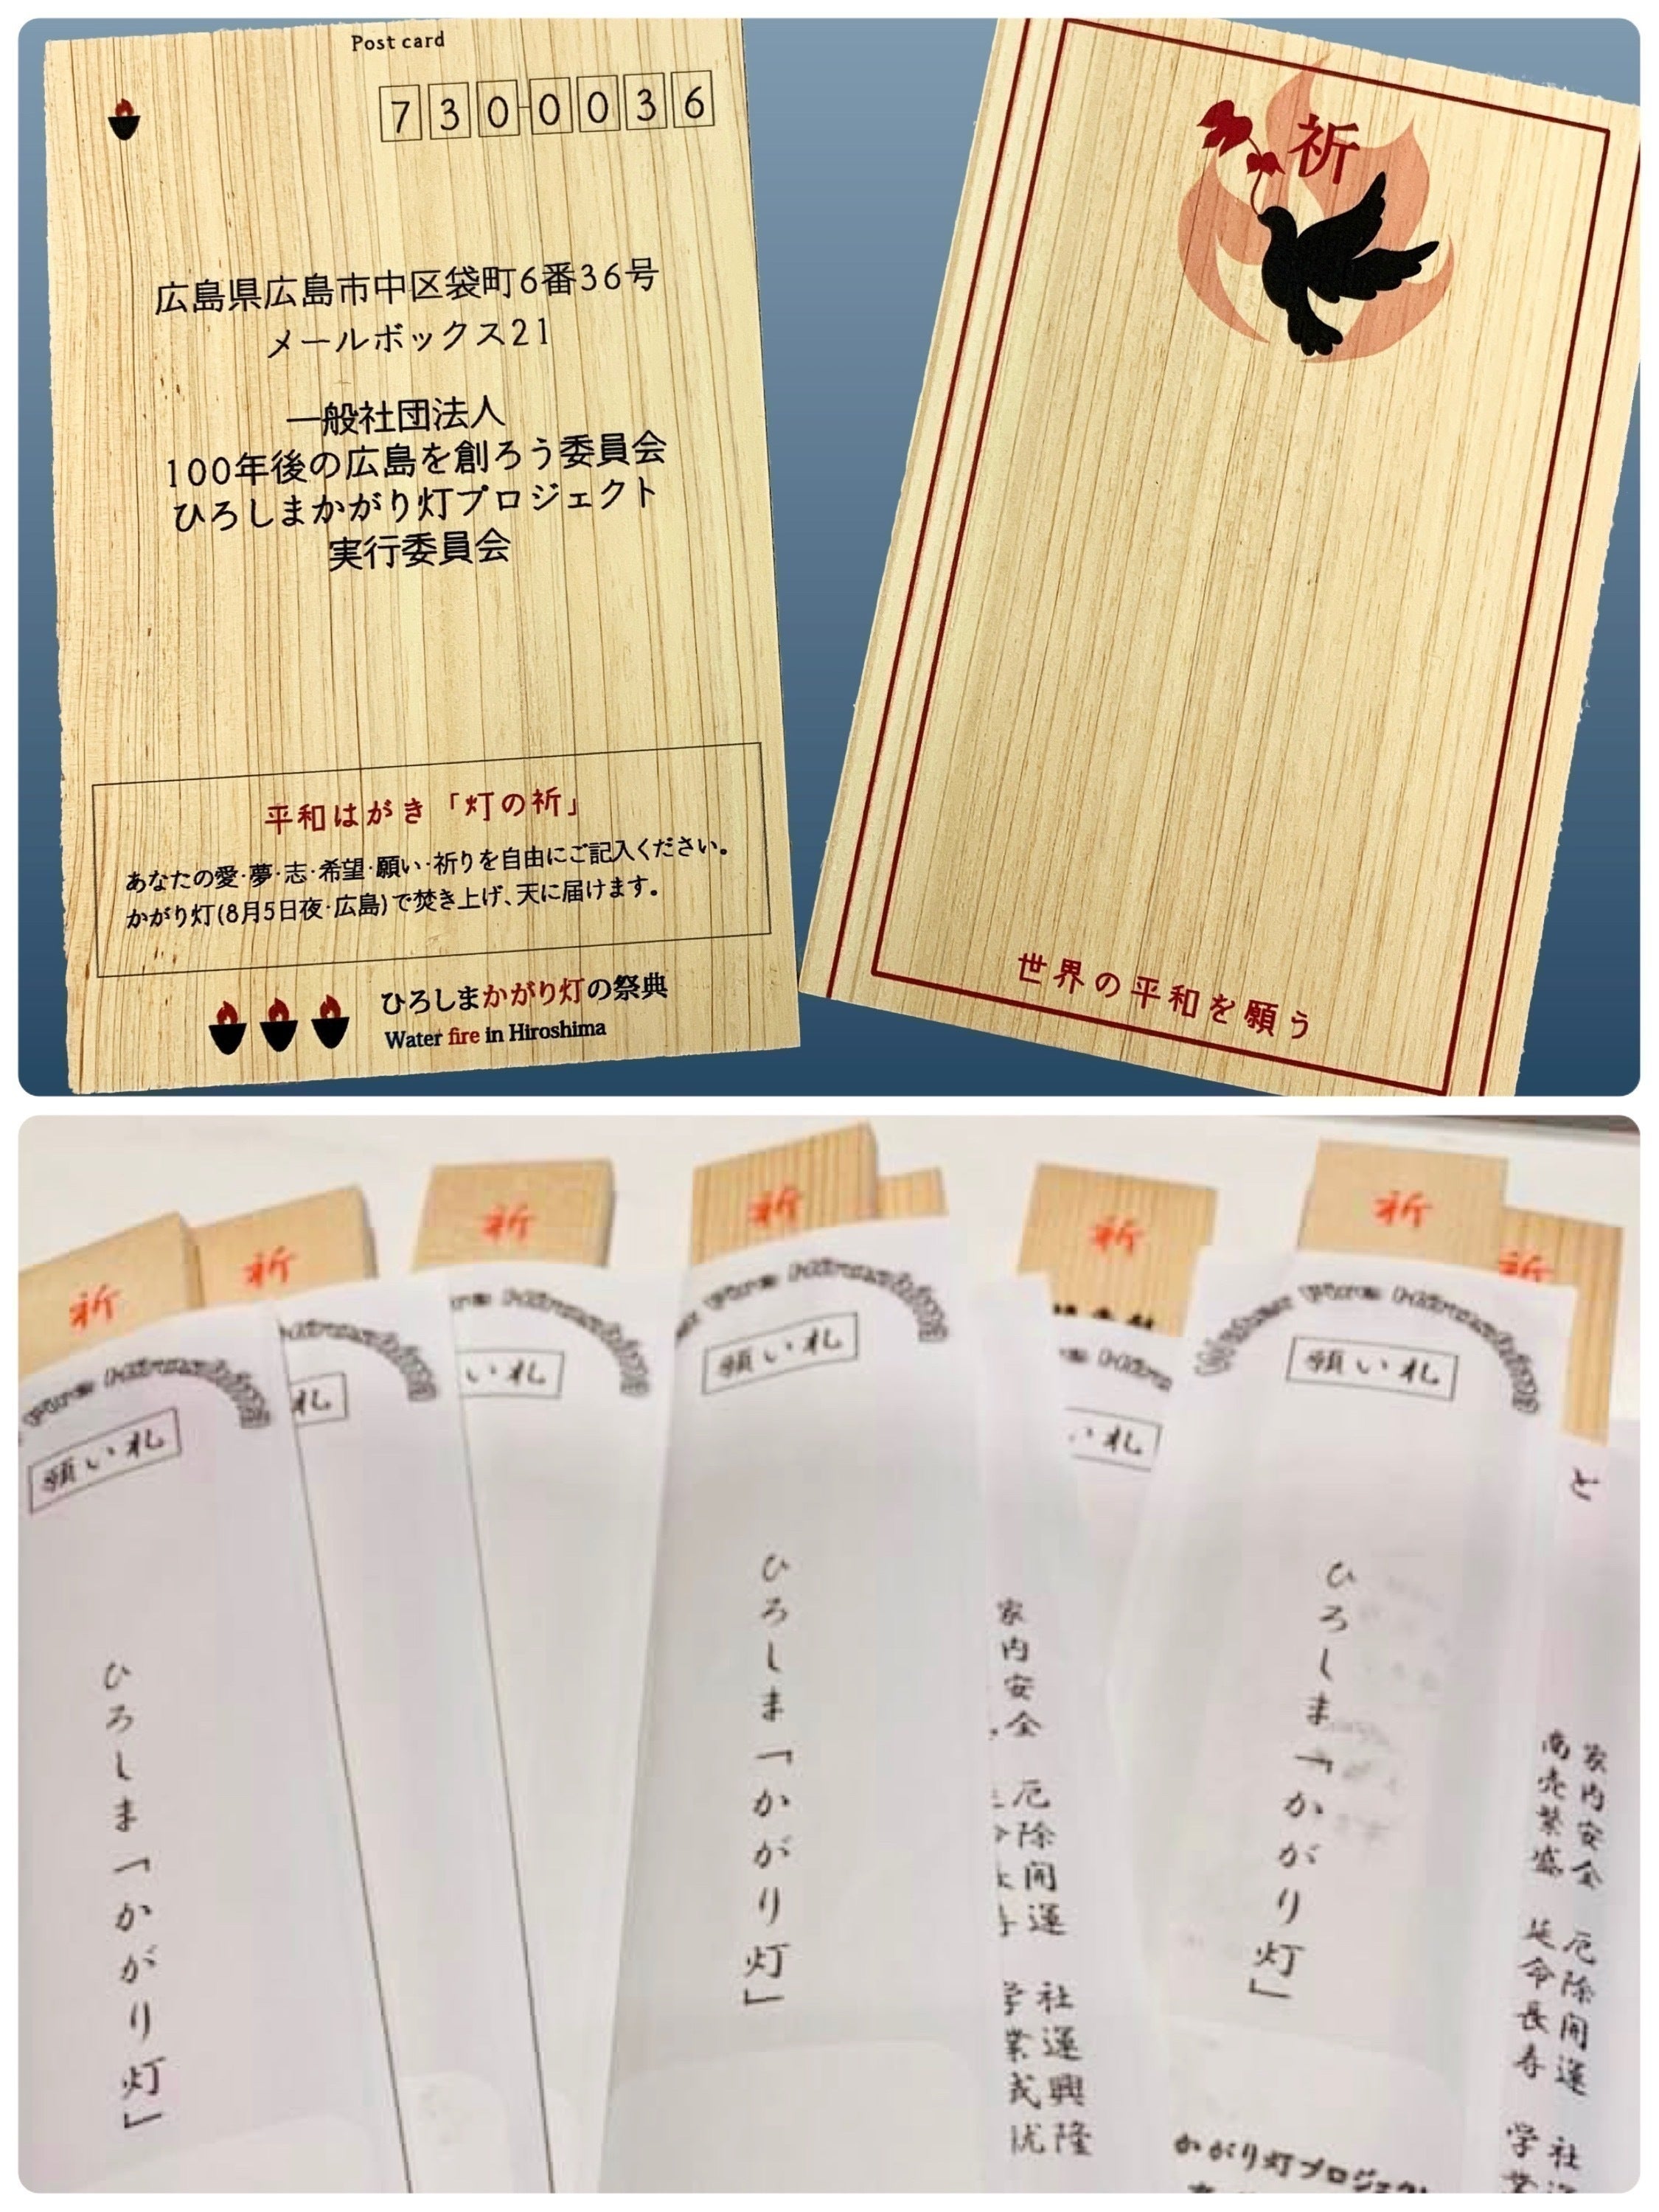 Post card
730-0036
広島県広島市中区袋町6番36号
メールボックス21
一般社団法人
100年後の広島を創ろう委員会
ひろしまかがり灯プロジェクト
実行委員会
平和はがき「灯の祈」
あなたの愛･夢･志･希望･願い･祈りを自由にご記入ください。
かがり灯(8月5日夜･広島)で焚き上げ、天に届けます。
ひろしまかがり灯の祭典
Water fire in Hiroshima
祈
世界の平和を願う
祈
祈
祈
祈
祈
祈
祈
Fire Hiroshima
願い札
ひろしま「かがり灯」
Hiroshima
札
Hiroshima
い札
Fire Hiroshima
願い札
ひろしま「かがり灯」
い札
家内安全 厄除開運 社運興隆
Water Fire Hiroshima
願い札
ひろしま「かがり灯」
かがり灯プロジェクト
と
家内安全 厄除開運 社
商売繁盛 延命長寿 学